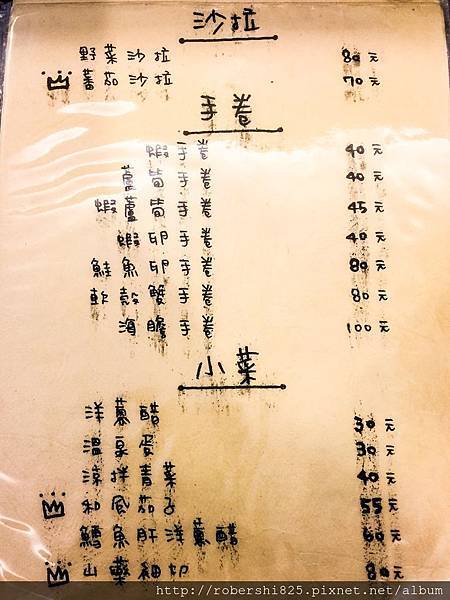 沙拉
野菜沙拉 80元
蕃茄沙拉 70元
手卷
蝦手卷 40元
蘆筍手卷 40元
蝦蘆筍手卷 45元
蝦卵手卷 40元
鮭魚卵手卷 80元
軟殼蟹手卷 80元
海膽手卷 100元
小菜
洋蔥醋 30元
溫泉蛋 30元
涼拌青菜 40元
和風茄子 55元
鱈魚肝洋蔥醋 60元
山藥細切 80元
http://robershi825.pixnet.net/album